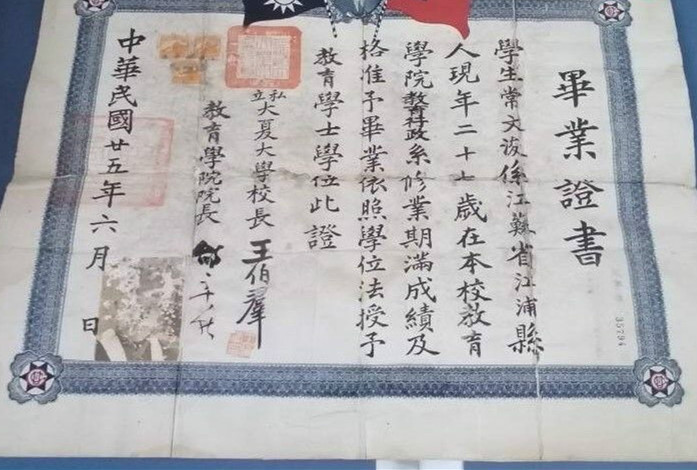 畢業證書
學生常文浚係江蘇省江浦縣
人現年二十七歲在本校教育
學院教育行政系修業期滿成績及
格准予畢業依照學位法授予
教育學士學位此證
私立大夏大學校長 王伯羣
教育學院院長
中華民國廿五年六月 日
35794